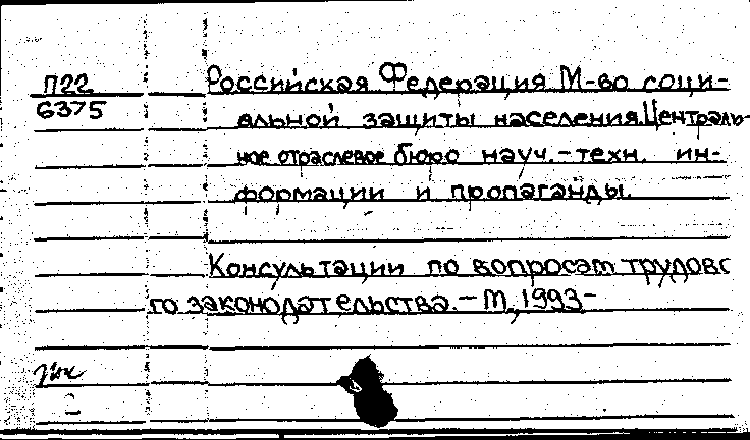 П22
6375
Российская Федерация М-во соци-
альной защиты населения. Централь-
ное отраслевое бюро науч.-техн. ин-
формации и пропаганды.
Консультации по вопросам трудово
го законодательства. - М., 1993 -